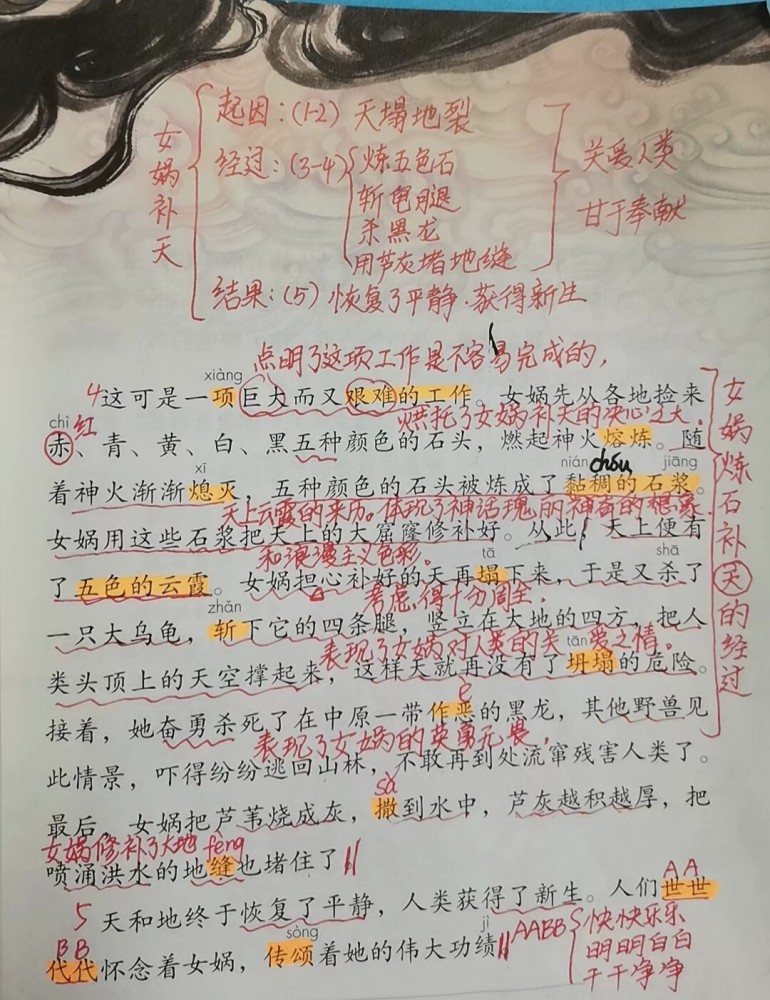 女娲补天
起因：(1-2) 天塌地裂
经过：(3-4) 炼五色石
斩龟腿
杀黑龙
用芦灰堵地缝
结果：(5) 恢复了平静·获得新生
关爱人类
甘于奉献
点明了这项工作是不容易完成的，
xiàng
4这可是一项巨大而又艰难的工作。女娲先从各地捡来
chì 红 烘托了女娲补天的决心之大.
赤、青、黄、白、黑五种颜色的石头，燃起神火熔炼。随
xī nián chóu jiāng
着神火渐渐熄灭，五种颜色的石头被炼成了黏稠的石浆。
天上云霞的来历。体现了神话瑰丽神奇的想象
女娲用这些石浆把天上的大窟窿修补好。从此，天上便有
和浪漫主义色彩。 tā shā
了五色的云霞。女娲担心补好的天再塌下来，于是又杀了
zhǎn 考虑得十分周全.
一只大乌龟，斩下它的四条腿，竖立在大地的四方，把人
表现了女娲对人类的关爱之情。 tān
类头顶上的天空撑起来，这样天就再没有了坍塌的危险。
è
接着，她奋勇杀死了在中原一带作恶的黑龙，其他野兽见
表现了女娲的英勇无畏，
此情景，吓得纷纷逃回山林，不敢再到处流窜残害人类了。
sà
最后，女娲把芦苇烧成灰，撒到水中，芦灰越积越厚，把
女娲修补了大地 feng
喷涌洪水的地缝也堵住了
A A
5 天和地终于恢复了平静，人类获得了新生。人们世世
B B sòng jì
代代怀念着女娲，传颂着她的伟大功绩
AABB 快快乐乐
明明白白
干干净净
女娲炼石补天的经过